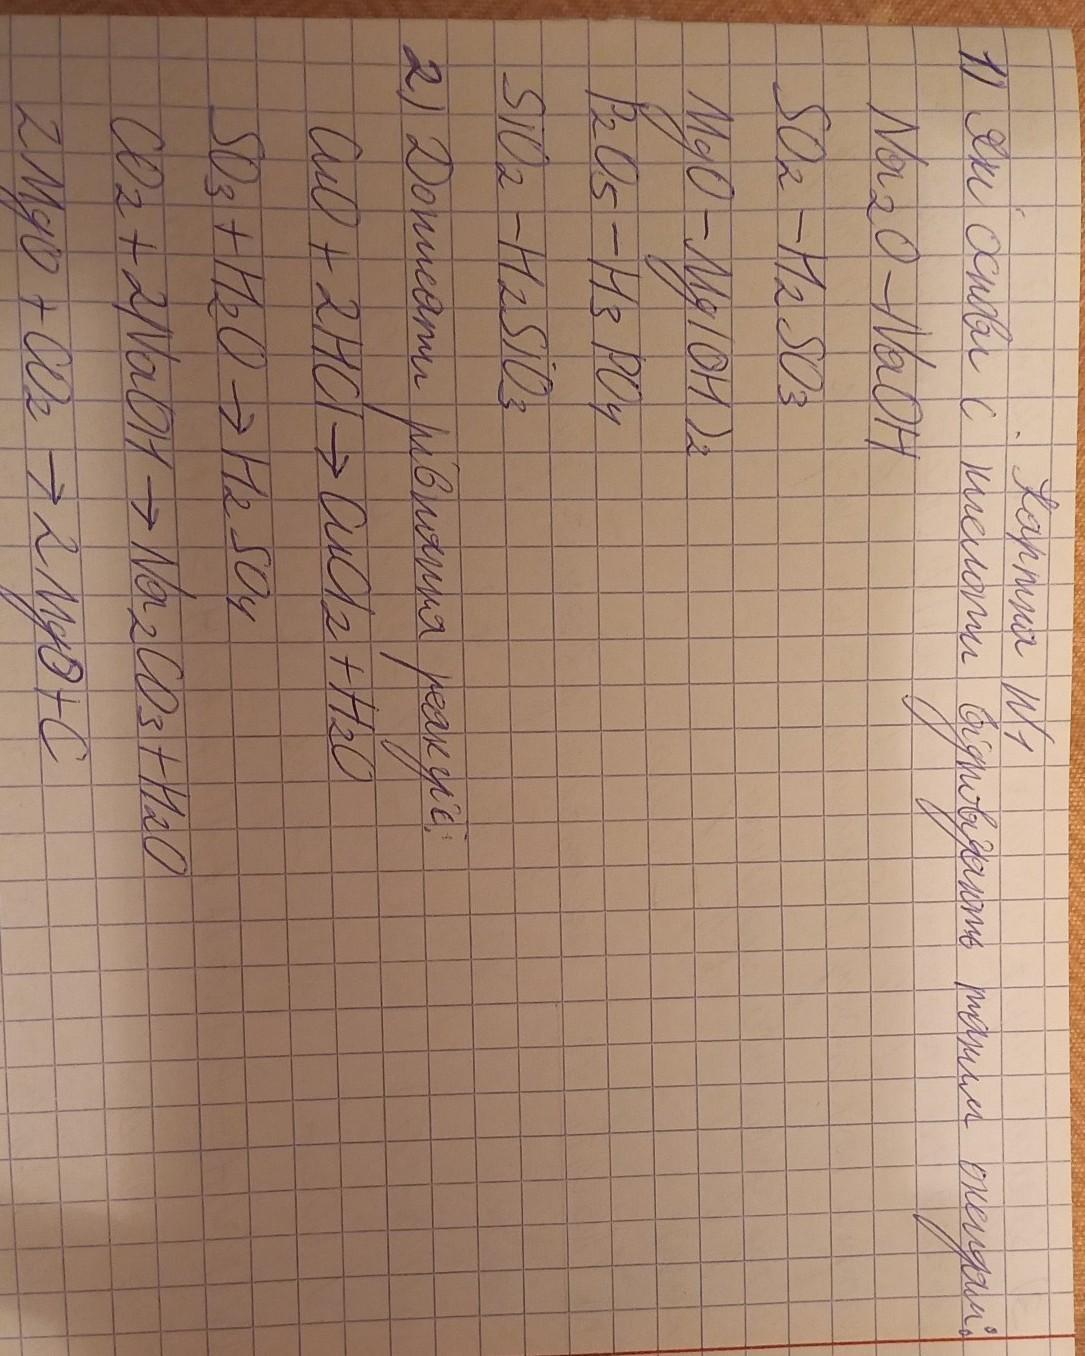 Картка №1
1) Які основи є кислоти відповідають таким оксидам:
Na2O – NaOH
SO2 – H2SO3
MgO – Mg(OH)2
P2O5 – H3PO4
SiO2 – H2SiO3
2) Дописати рівняння реакції:
CuO + 2HCl → CuCl2 + H2O
SO3 + H2O → H2SO4
CO2 + 2NaOH → Na2CO3 + H2O
2MgO + CO2 → 2MgO + C